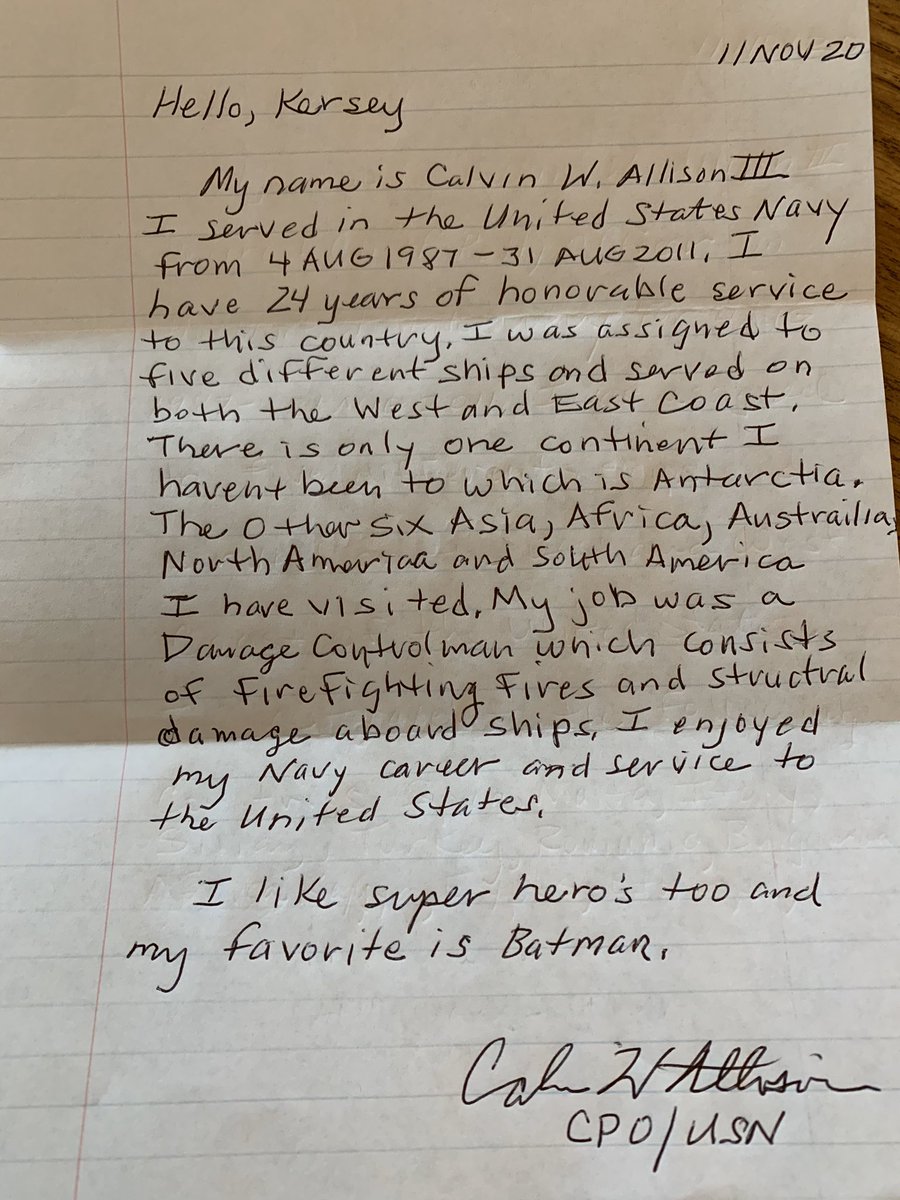 11 NOV 20
Hello, Kersey
My name is Calvin W. Allison III
I served in the United States Navy
from 4 AUG 1987 - 31 AUG 2011. I
have 24 years of honorable service
to this country. I was assigned to
five different ships and served on
both the West and East Coast.
There is only one continent I
havent been to which is Antarctia.
The Other six Asia, Africa, Austrailia,
North America and South America
I have visited. My job was a
Damage Controlman which consists
of Firefighting Fires and structral
damage aboard ships. I enjoyed
my Navy career and service to
the United States.
I like super hero's too and
my favorite is Batman.
Calvin W Allison
CPO/USN